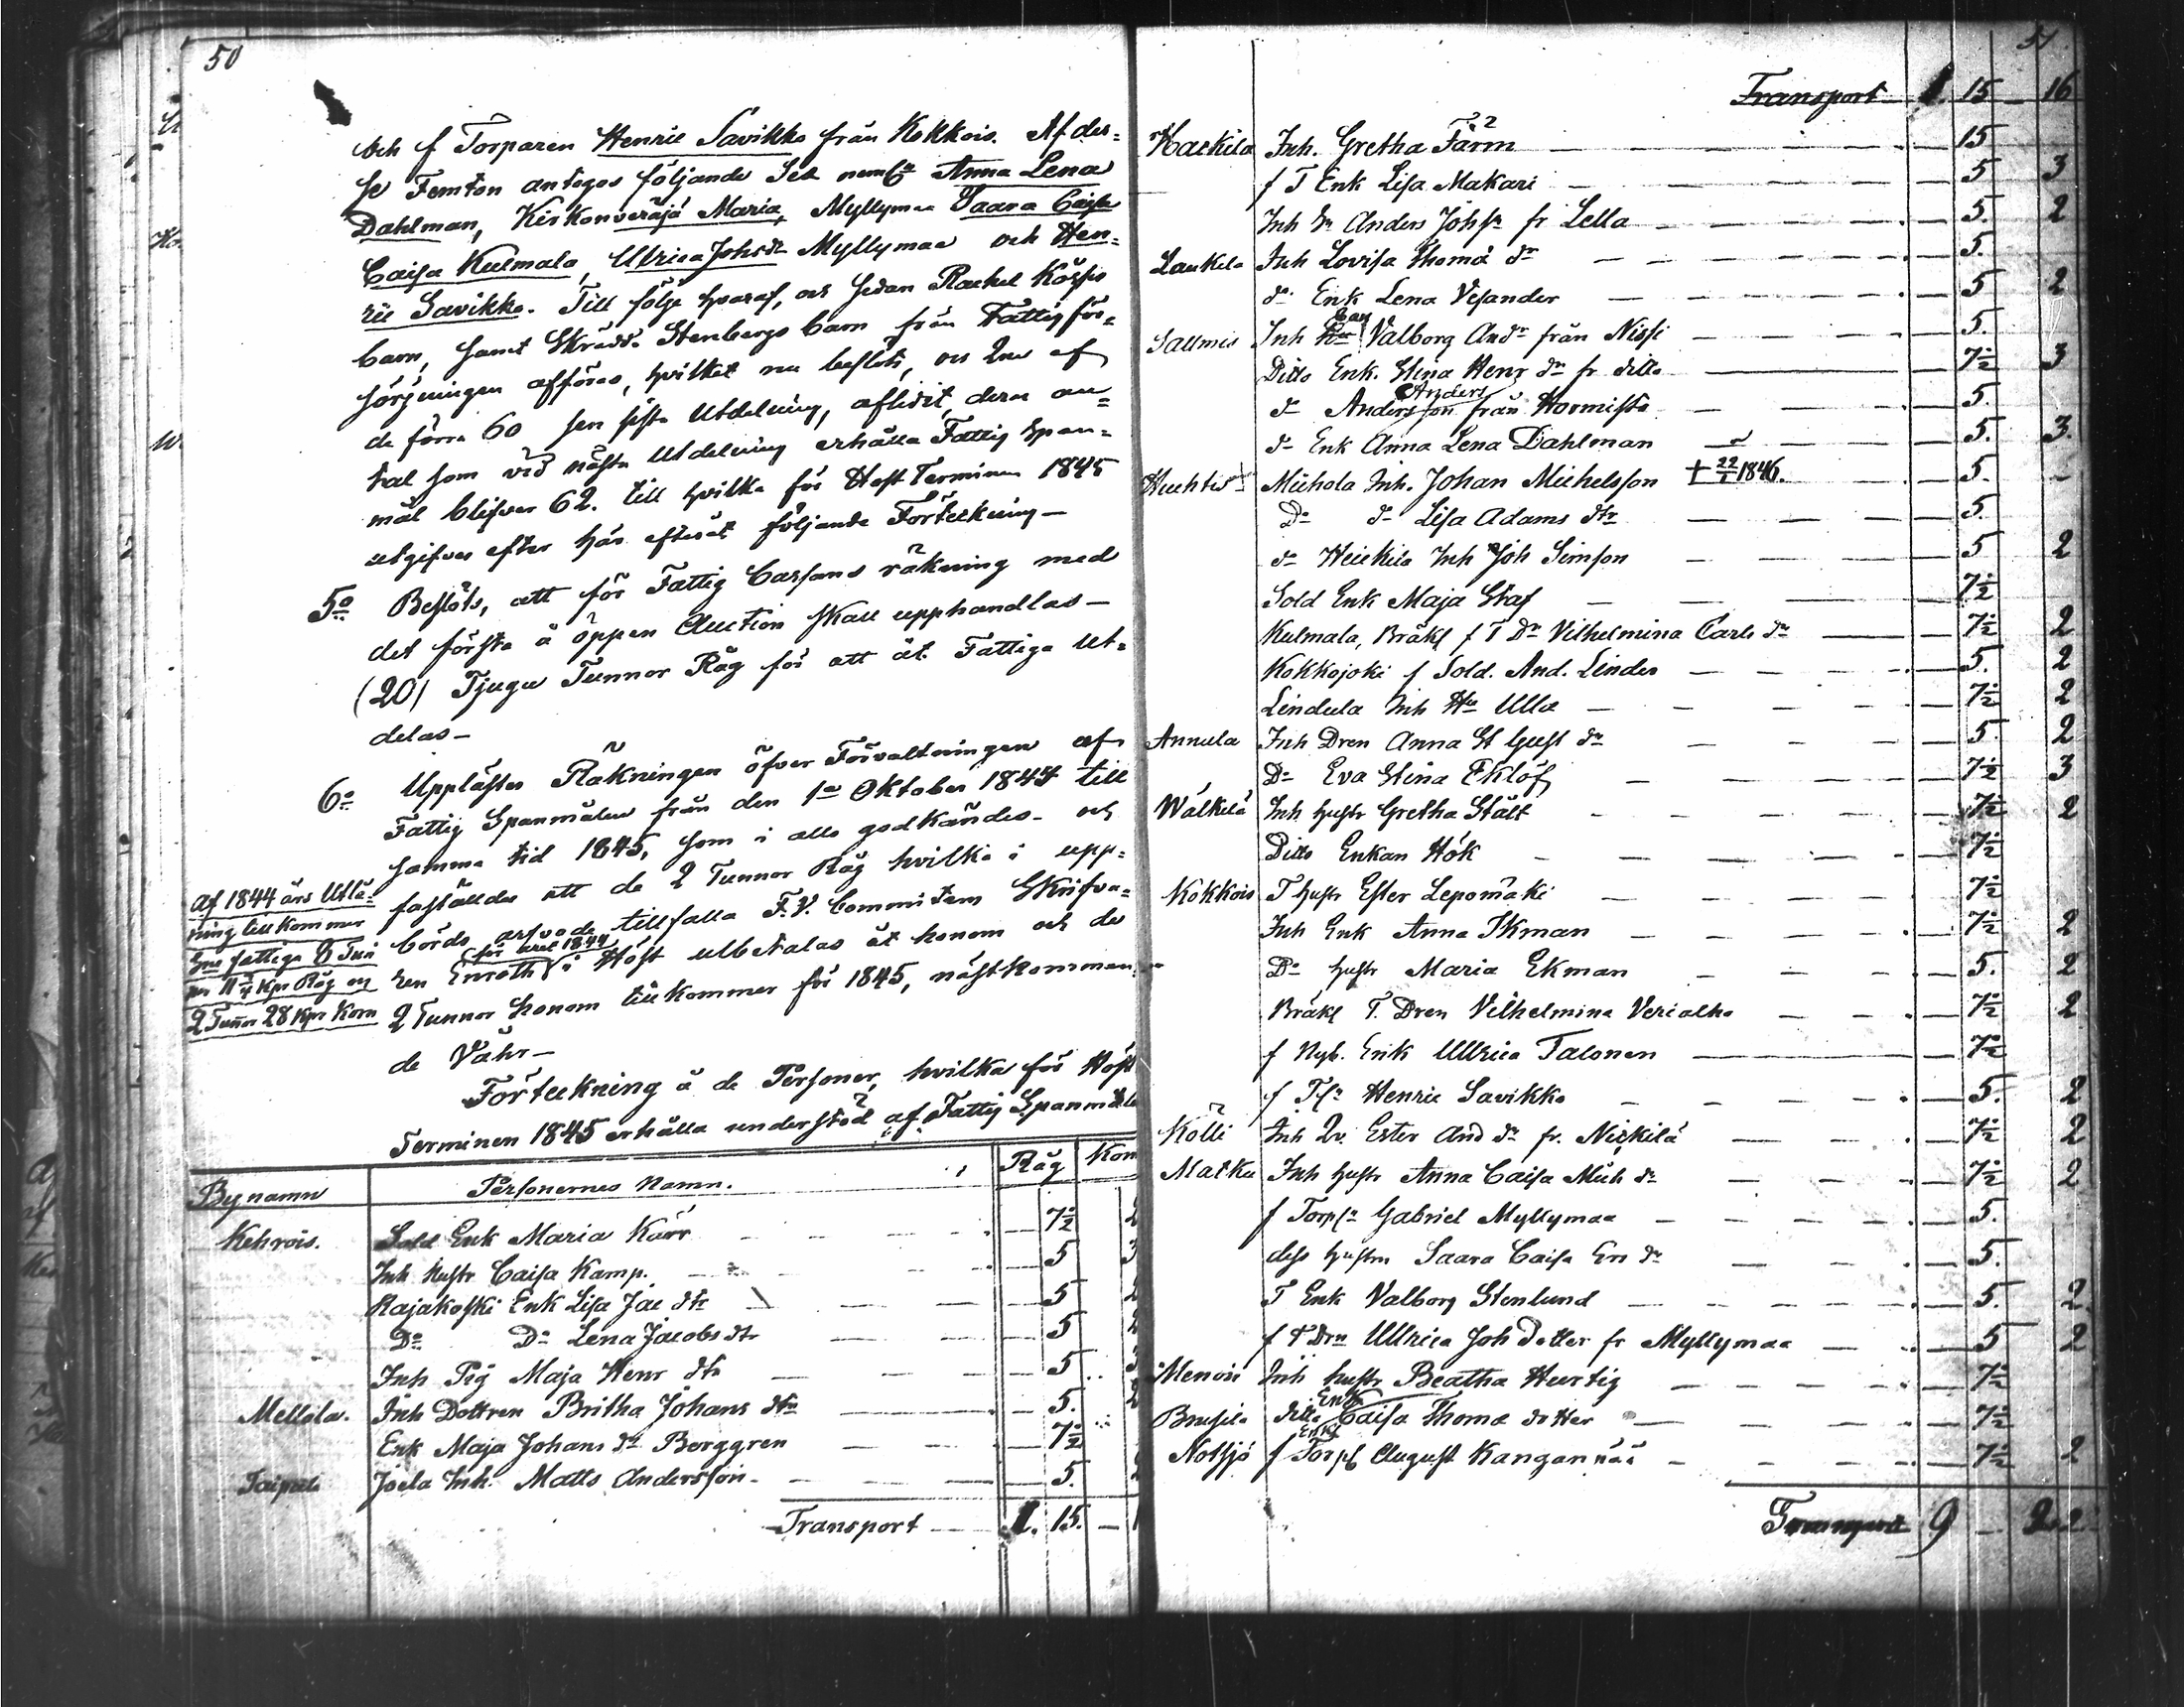 50
och f Torparen Henric Savikko från Kokkois. Af des=
se Femton antogos följande Sex neml. Anna Lena
Dahlman, Kirkonveräjä Maria, Myllymaa Saara Caisa
Caisa Kulmala, Ullrica Johsdr Myllymaa och Hen=
ric Savikko. Till följe hvaraf, och sedan Rachel Köppis
barn, samt Skrädd. Stenbergs barn från Fattig för=
sörjningen afföras, hvilket nu beslöts, och 2ne af
de förra 60 sen sista Utdelning, aflidit, deras an=
tal som vid nästa Utdelning erhålla Fattig Span=
mål blifver 62. till hvilka för Höst Terminen 1845
utgifves efter här efteråt följande Förteckning —
5o Beslöts, att för Fattig Cassans räkning med
det första å öppen Auction skall upphandlas —
(20) Tjugu Tunnor Råg för att åt Fattiga ut=
delas —
6o Upplästes Räkningen öfver Förvaltningen af
Fattig Spanmålen från den 1a Oktober 1844 till
samma tid 1845, som i allo godkändes — och
fastställdes att de 2 Tunnor Råg hvilka i upp=
börds arfvode tillfalla F.V. Commitens Skrifva=
för året 1844
ren Enroth i Höst utbetalas åt honom och de
2 Tunnor honom tillkommer för 1845, nästkomman=
de Våhr —
Af 1844 års Utlå=
ning tillkommer
fattiga 8 Tun
nor 11 3/4 Kpr Råg och
2 Tunnor 28 Kpr Korn
Förteckning å de Personer, hvilka för Höst
Terminen 1845 erhålla understöd af Fattig Spanmålen
Bynamn Personernes Namn. Råg Korn
Kehrois. Sold Enk Maria Kärr — 7½ 2
Inh Hustr Caisa Kamp. — 5 3
Rajakoski Enk Lisa Jac dtr — 5 2
Do Do Lena Jacobs dtr — 5 2
Inh Pig Maja Henr dtr — 5 3
Mellola. Inh Dottren Britha Johans dtr — 5. 2
Enk Maja Johans dr Berggren — 7½
Taipale Joela Inh. Matts Andersson — 5.
Transport — 1. 15. —
51
Transport 1. 15 — 16
Haekila Inh. Gretha Färm — 15
f T Enk Lisa Makari — 5 3
Inh Dr Anders Johss fr Lella — 5. 2
Laukela Inh Lovisa Thoma dr — 5.
do Enk Lena Vesander — 5 2
Sallmis Inh Valborg And dr från Nissi — 5.
Ditto Enk. Stina Henr dr fr ditto — 7½ 3
Anders
do Andersson från Hormisto — 5.
do Enk Anna Lena Dahlman — 5. 3.
Huhtis Michola Inh. Johan Michelsson † 22/1 1846. 5. -
Do do Lisa Adams dtr — 5.
do Heickila Inh Joh Simson — 5 2
Sold Enk Maja Staf — 7½
Kulmala, Bräkl f T Dr Vilhelmina Carls dr — 7½ 2
Kokkojoki f Sold. And. Linder — 5. 2
Lindula Inh Hu Ulla — 7½ 2
Annula Inh Dren Anna St Gust dr — 5. 2
Do Eva Stina Eklöf — 7½ 3
Wälkilä Inh hustr Gretha Stält — 7½ 2
Ditto Enkan Hök — 7½
Kokkois T hustr Ester Lepomäki — 7½
Inh Enk Anna Ikman — 7½ 2
Do hustr Maria Ekman — 5. 2
Bräkl T. Dren Vilhelmina Verialho — 7½ 2
f Nyb. Enk Ullrica Talonen — 7½
f Tpr Henric Savikko — 5. 2
Kölli Inh Qv. Ester And dr fr. Nickilä — 7½ 2
Matku Inh hustr Anna Caisa Mich dr — 7½ 2
f Torpr Gabriel Myllymaa — 5.
dess hustru Saara Caisa Eri dr — 5.
T Enk Valborg Stenlund — 5. 2
f T Drn Ullrica Joh Dotter fr Myllymaa — 5 2
Menois Inh hustr Beatha Hurtig — 7½
Enk
Brusila ditto Caisa Thoma dotter — 7½
Enk
Notsjö f Torp August Kangannää — 7½ 2
Transport 9 — 22